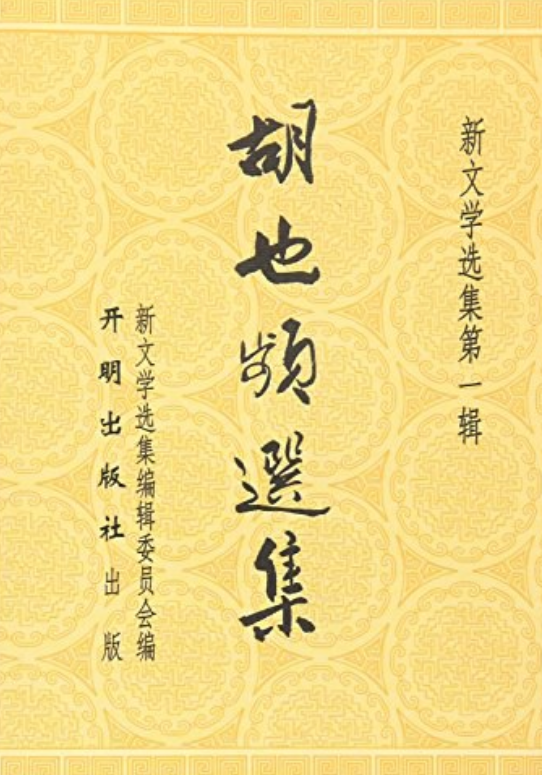 新文学选集第一辑
胡也频選集
新文学选集编辑委员会编
开明出版社出版